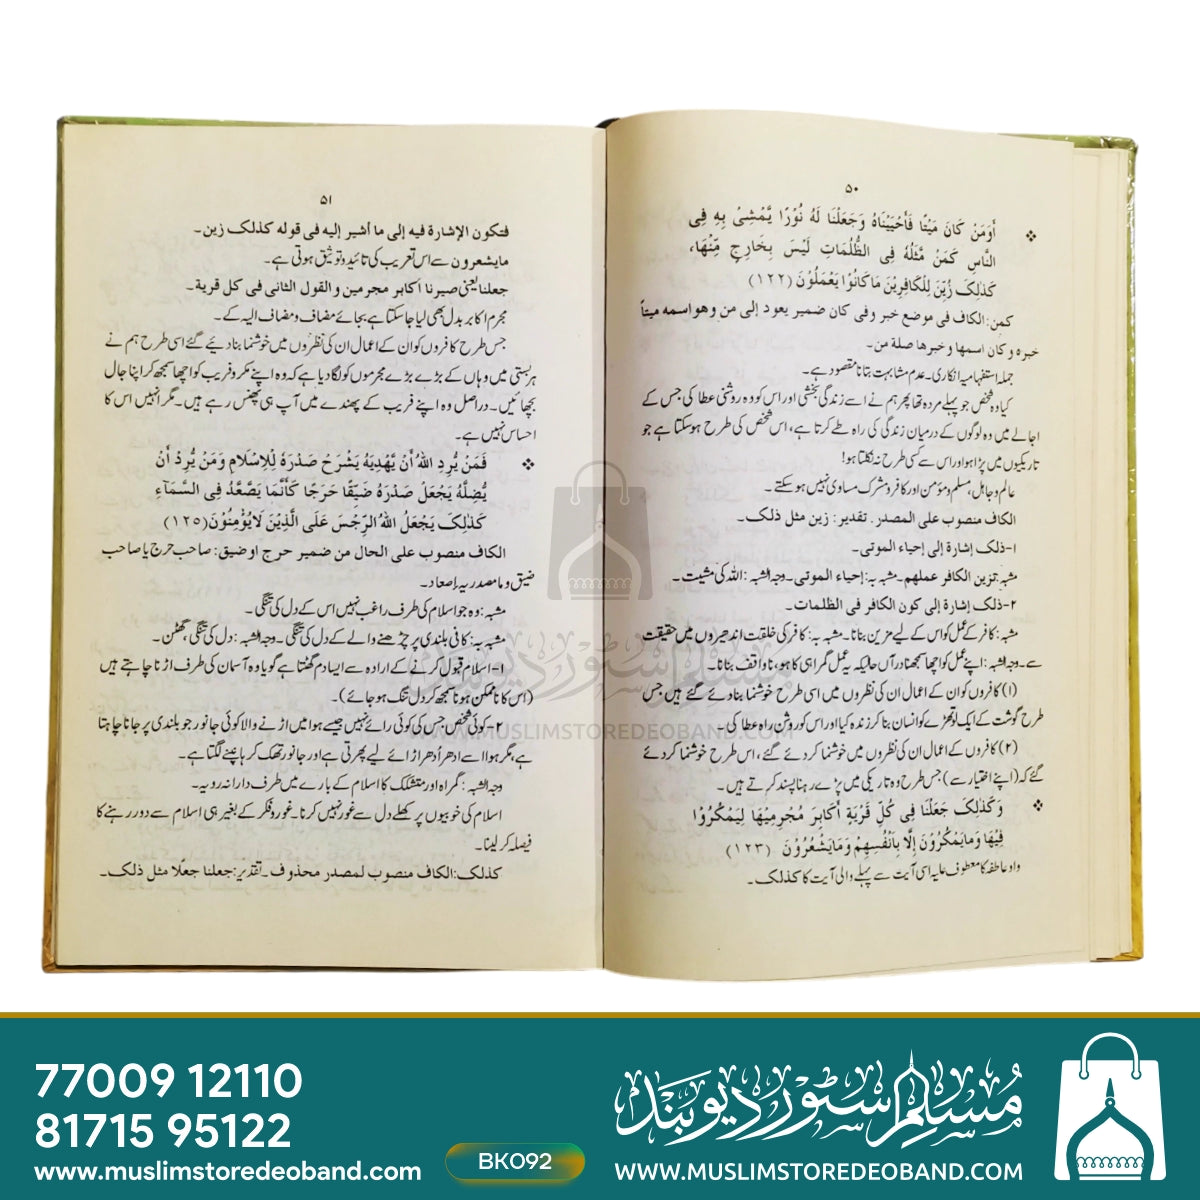 ۵۰
❖ أَوَمَنْ كَانَ مَيْتًا فَأَحْيَيْنَاهُ وَجَعَلْنَا لَهُ نُوْرًا يَّمْشِيْ بِهِ فِي
النَّاسِ كَمَنْ مَّثَلُهُ فِي الظُّلُمَاتِ لَيْسَ بِخَارِجٍ مِّنْهَا،
كَذٰلِكَ زُيِّنَ لِلْكَافِرِيْنَ مَا كَانُوْا يَعْمَلُوْنَ (١٢٢)
كمن: الكاف في موضع خبر وفي كان ضمير يعود إلى من وهو اسمه ميتاً
خبره و كان اسمها وخبرها صلة من۔
جملہ استفہامیہ انکاری۔ عدم مشابہت بتانا مقصود ہے۔
کیا وہ شخص جو پہلے مردہ تھا پھر ہم نے اسے زندگی بخشی اور اس کو وہ روشنی عطا کی جس کے
اجالے میں وہ لوگوں کے درمیان زندگی کی راہ طے کرتا ہے، اس شخص کی طرح ہو سکتا ہے جو
تاریکیوں میں پڑا ہو اور اس سے کسی طرح نہ نکلتا ہو!
عالم و جاہل، مسلم و مؤمن اور کافر و مشرک مساوی نہیں ہو سکتے۔
الكاف منصوب على المصدر. تقدير: زين مثل ذلك۔
١-ذلك إشارة إلى إحياء الموتى۔
مشبہ: تزين الكافر عملهم۔ مشبہ بہ: إحياء الموتى۔ وجہ الشبہ: اللہ کی مشیت۔
٢-ذلك إشارة إلى كون الكافر في الظلمات۔
مشبہ: کافر کے عمل کو اس کے لیے مزین بنانا۔ مشبہ بہ: کافر کی خلقت اندھیروں میں حقیقت
سے۔ وجہ الشبہ: اپنے عمل کو اچھا سمجھنا درآں حالیکہ یہ عمل گمراہی کا ہو، ناواقف بنانا۔
(۱) کافروں کو ان کے اعمال ان کی نظروں میں اسی طرح خوشنما بنا دئے گئے ہیں جس
طرح گوشت کے ایک لوتھڑے کو انسان بنا کر زندہ کیا اور اس کو روشن راہ عطا کی۔
(۲) کافروں کے اعمال ان کی نظروں میں خوشنما کر دئے گئے، اس طرح خوشنما کر دئے
گئے کہ (اپنے اختیار سے) جس طرح وہ تاریکی میں پڑے رہنا پسند کرتے ہیں۔
❖ وَكَذٰلِكَ جَعَلْنَا فِي كُلِّ قَرْيَةٍ أَكَابِرَ مُجْرِمِيْهَا لِيَمْكُرُوْا
فِيْهَا وَمَا يَمْكُرُوْنَ إِلَّا بِأَنْفُسِهِمْ وَمَا يَشْعُرُوْنَ (١٢٣)
واو عاطفہ کا معطوف علیہ اسی آیت سے پہلے والی آیت کا كذلك۔
۵۱
فتكون الإشارة فيه إلى ما أشير إليه في قوله كذلك زين۔
ما يشعرون سے اس تعریب کی تائید و توثیق ہوتی ہے۔
جعلنا یعنی صيرنا أكابر مجرمين و القول الثاني في كل قرية۔
مجرم اکابر بدل بھی لیا جا سکتا ہے بجائے مضاف و مضاف الیہ کے۔
جس طرح کافروں کو ان کے اعمال ان کی نظروں میں خوشنما بنا دیئے گئے اسی طرح ہم نے
ہر بستی میں وہاں کے بڑے بڑے مجرموں کو لگا دیا ہے کہ وہ اپنے مکر و فریب کو اچھا سمجھ کر اپنا جال
بچھائیں۔ دراصل وہ اپنے فریب کے پھندے میں آپ ہی پھنس رہے ہیں۔ مگر انہیں اس کا
احساس نہیں ہے۔
❖ فَمَنْ يُّرِدِ اللّٰهُ أَنْ يَّهْدِيَهُ يَشْرَحْ صَدْرَهُ لِلْإِسْلَامِ وَمَنْ يُّرِدْ أَنْ
يُّضِلَّهُ يَجْعَلْ صَدْرَهُ ضَيِّقًا حَرَجًا كَأَنَّمَا يَصَّعَّدُ فِي السَّمَآءِ
كَذٰلِكَ يَجْعَلُ اللّٰهُ الرِّجْسَ عَلَى الَّذِيْنَ لَا يُؤْمِنُوْنَ (١٢٥)
الكاف منصوب على الحال من ضمير حرج او ضيق: صاحب حرج یا صاحب
ضيق و ما مصدریہ إصعاد۔
مشبہ: وہ جو اسلام کی طرف راغب نہیں اس کے دل کی تنگی۔
مشبہ بہ: کافی بلندی پر چڑھنے والے کے دل کی تنگی۔ وجہ الشبہ: دل کی تنگی، گھٹن۔
۱-اسلام قبول کرنے کے ارادہ سے ایسا دم گھٹتا ہے گویا وہ آسمان کی طرف اڑنا چاہتے ہیں
(اس کا ناممکن ہونا سمجھ کر دل تنگ ہو جائے)۔
۲-کوئی شخص جس کی کوئی رائے نہیں جیسے ہوا میں اڑنے والا کوئی جانور جو بلندی پر جانا چاہتا
ہے، مگر ہوا اسے ادھر اُدھر اڑائے لیے پھرتی ہے اور جانور تھک کر ہانپنے لگتا ہے۔
وجہ الشبہ: گمراہ اور متشکک کا اسلام کے بارے میں طرف دارانہ رویہ۔
اسلام کی خوبیوں پر کھلے دل سے غور نہیں کرنا۔ غور و فکر کے بغیر ہی اسلام سے دور رہنے کا
فیصلہ کر لینا۔
كذلك: الكاف منصوب لمصدر محذوف۔ تقدير: جعلنا جعلًا مثل ذلك۔
مسلم سٹور دیوبند
WWW.MUSLIMSTOREDEOBAND.COM
77009 12110
81715 95122
www.muslimstoredeoband.com
BK092
مسلم سٹور دیوبند
WWW.MUSLIMSTOREDEOBAND.COM